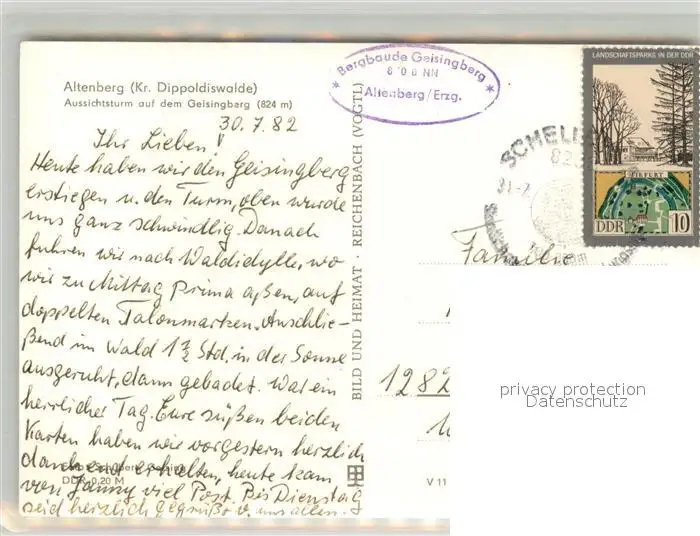 Altenberg (Kr. Dippoldiswalde)
Aussichtsturm auf dem Geisingberg (824 m)
30.7.82
Ihr Lieben!
Heute haben wir den Geisingberg
erstiegen u. den Turm, oben wurde
uns ganz schwindlig. Danach
fuhren wir nach Waldidylle, wo
wir zu Mittag prima aßen, auf
doppelten Talonmarken. Anschlie-
ßend im Wald 1 1/2 Std. in der Sonne
ausgeruht, dann gebadet. War ein
herrlicher Tag. Eure süßen beiden
Karten haben wir vorgestern herzlich
dankend erhalten, heute kam
von Janny viel Post. Bis Dienstag
seid herzlich gegrüßt v. uns allen.
DDR 0,20 M
BILD UND HEIMAT · REICHENBACH (VOGTL)
V 11
Bergbaude Geisingberg
NN
Altenberg/Erzg.
LANDSCHAFTSPARKS IN DER DDR
DDR 10
Familie
1282
privacy protection
Datenschutz